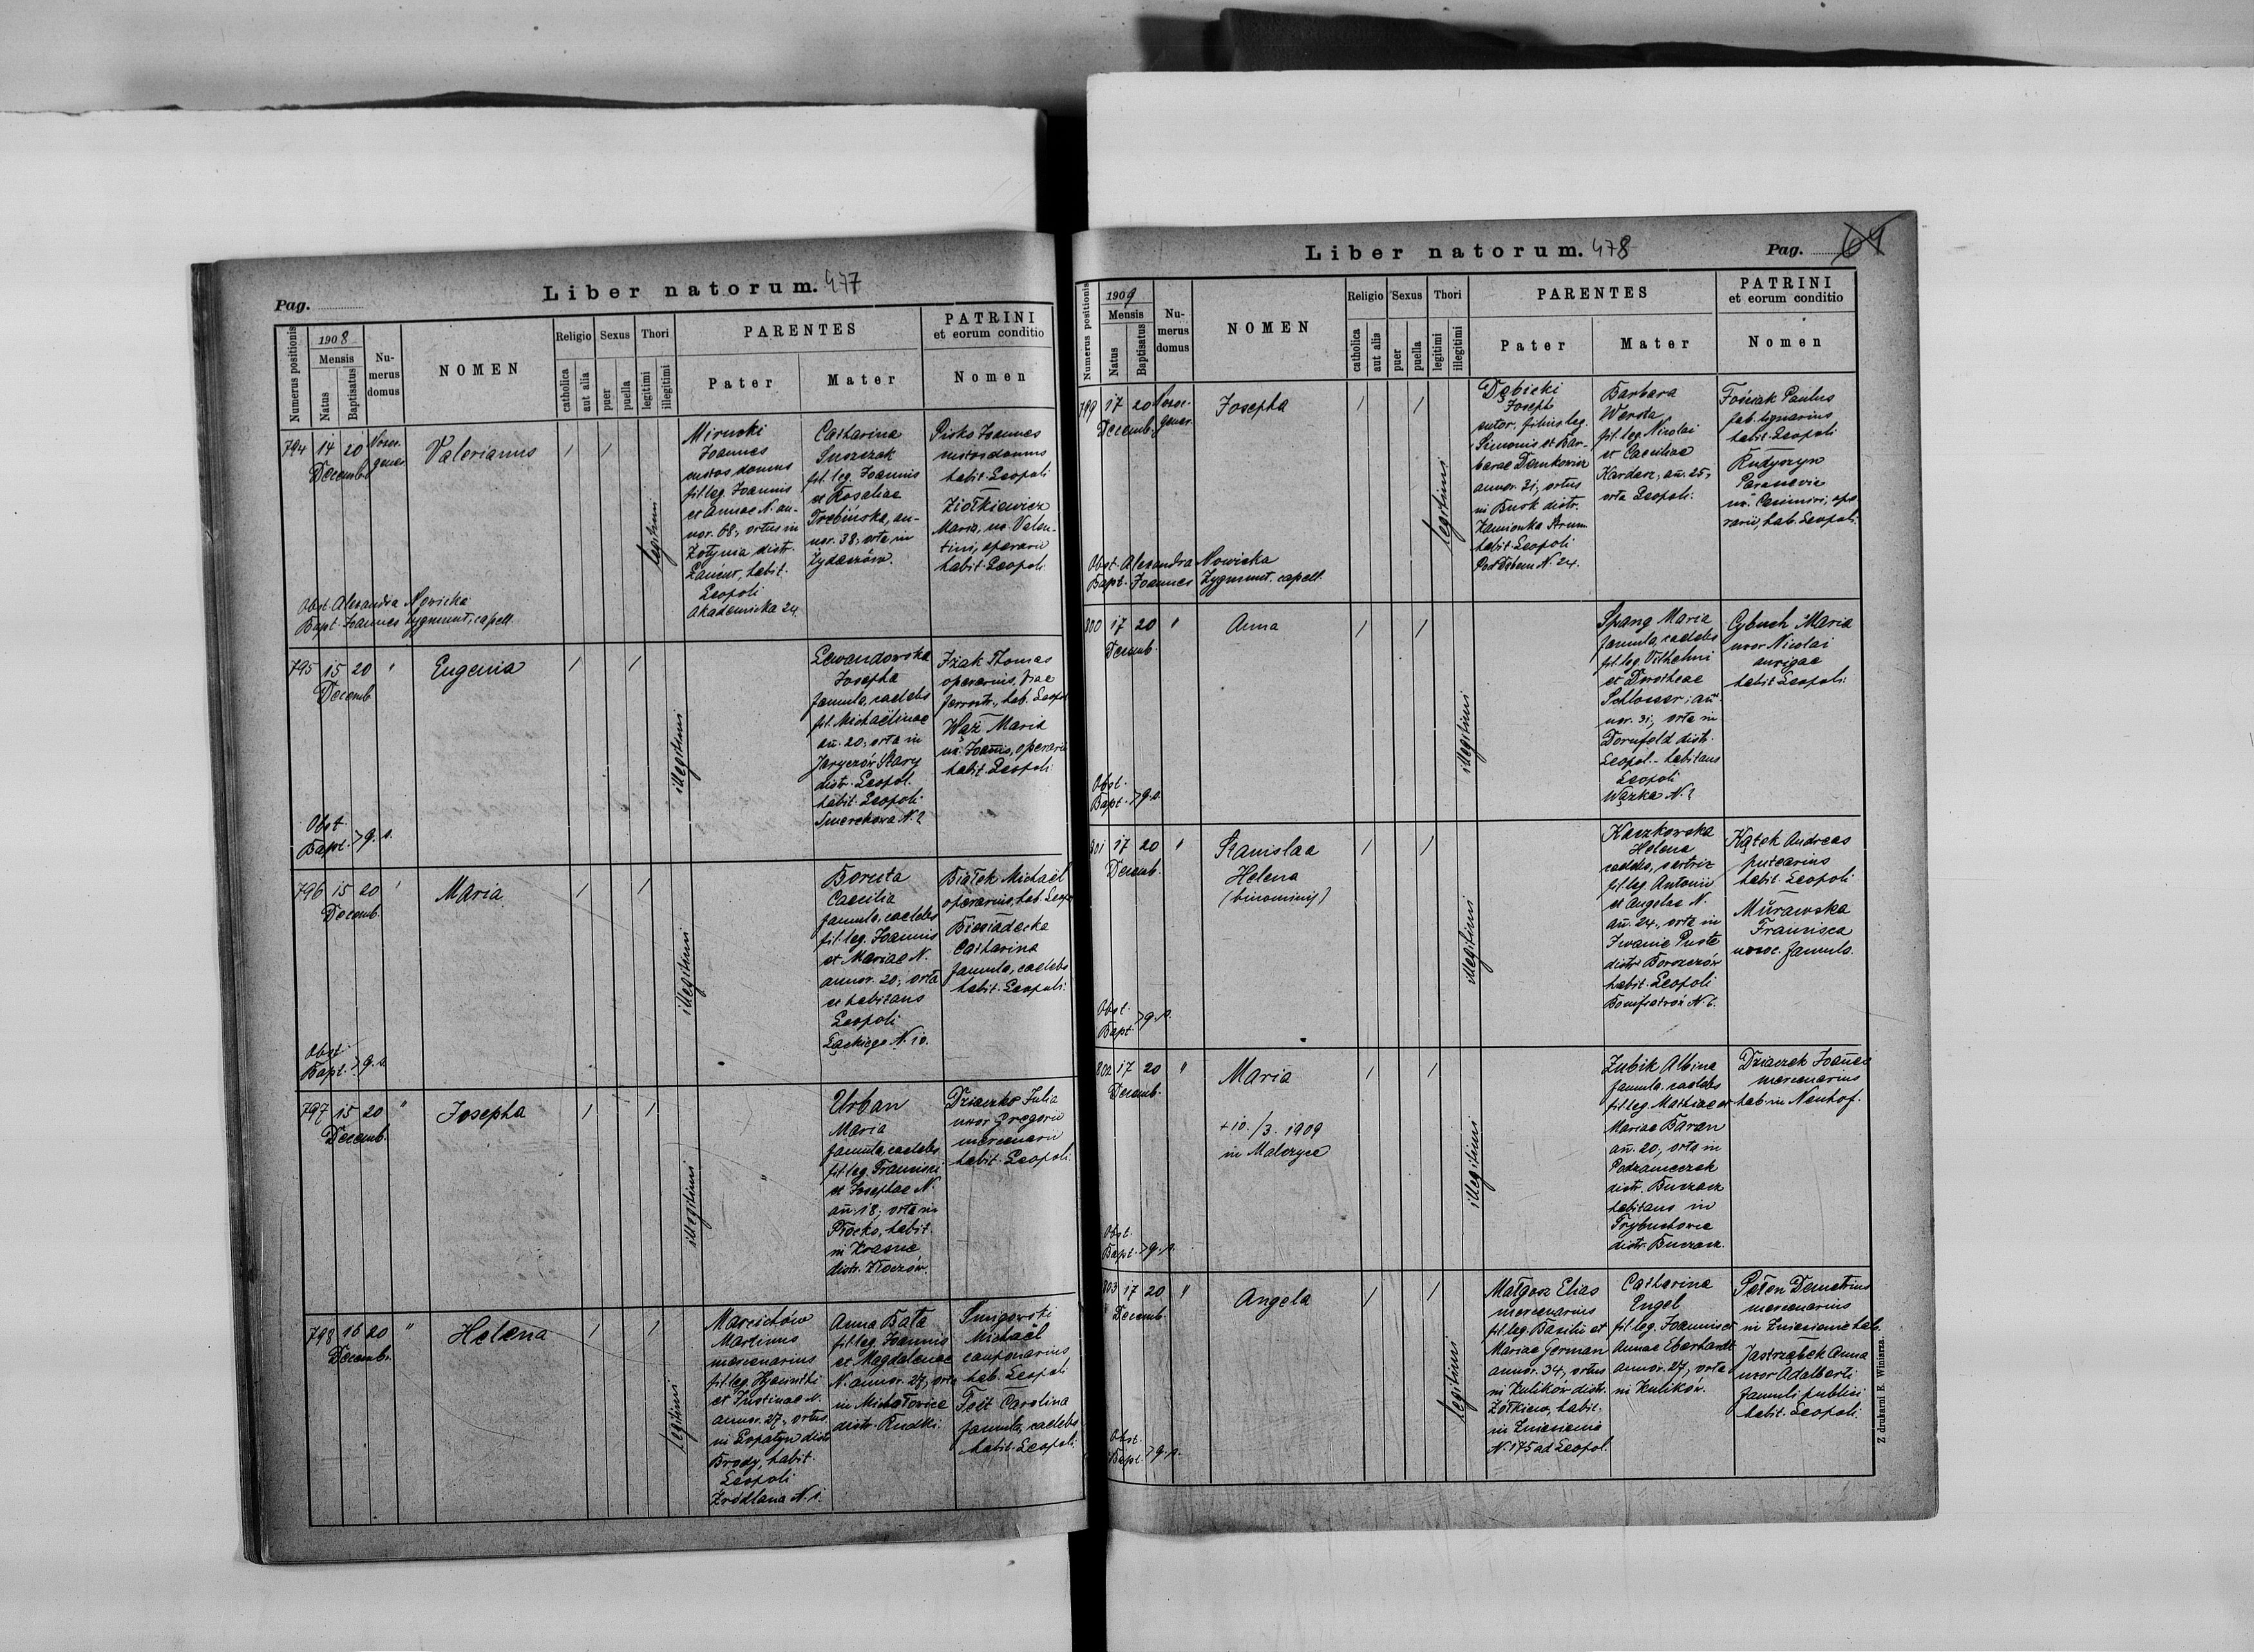 Pag.
Liber natorum. 477
Numerus positionis
1908
Mensis
Natus
Baptisatus
Nu-
merus
domus
NOMEN
Religio
catholica
aut alia
Sexus
puer
puella
Thori
legitimi
illegitimi
PARENTES
Pater
Mater
PATRINI
et eorum conditio
Nomen
794
14
20
Decemb.
Valerianus
/
/
legitimi
Joannes
custos domus
fil. leg. Joannis
et Annae N. an-
nor. 68, ortus in
Żołynia distr.
Łańcut, habit.
Leopoli
Akademicka 24.
Catharina
fil. leg. Joannis
et Rosaliae
Trebińska, an-
nor. 38, orta in
Żydaczów.
Pirko Joannes
custos domus
habit. Leopoli
Ziółkiewicz
Maria, ux. Valen-
tini, operarii
habit. Leopoli
Obst. Alexandra Nowicka
Bapt. Joannes Zygmunt, capell.
795
15
20
"
Decemb.
Eugenia
/
/
illegitimi
Lewandowska
Josepha
famula, caelebs
fil. Michaelinae
an. 20, orta in
Jaryczów Stary
distr. Leopol.
habit. Leopoli
Smerekowa N. 2
Iżak Thomas
operarius, viae
ferrostr., hab. Leopoli
Wąż Maria
ux. Joannis, operarii
habit. Leopoli
Obst.
Bapt. > q. s.
796
15
20
'
Decemb.
Maria
/
/
illegitimi
Boruta
Caecilia
famula, caelebs
fil. leg. Joannis
et Mariae N.
annor. 20, orta
et habitans
Leopoli
Łąckiego N. 10.
Białek Michael
operarius, hab. Leopoli
Biesiadecka
Catharina
famula, caelebs
habit. Leopoli
Obst.
Bapt. > q. s.
797
15
20
"
Decemb.
Josepha
/
/
illegitimi
"
Urban
Maria
famula, caelebs
fil. leg. Francisci
et Josephae N.
an. 18, orta in
Płocko, habit.
in Krasne
distr. Złoczów.
Dziaczko Julia
uxor Gregorii
mercenarii
habit. Leopoli
798
16
20
"
Decemb.
Helena
/
/
legitimi
Marcichów
Martinus
mercenarius
fil. leg. Hyacinthi
et Justinae N.
annor. 27, ortus
in Łopatyn distr.
Brody, habit.
Leopoli
Źródlana N. 1.
Anna Bała
fil. leg. Joannis
et Magdalenae
N. annor. 27, orta
in Michałowice
distr. Rudki.
Śmigowski
Michael
cauponarius
hab. Leopoli
Feit Carolina
famula, caelebs
habit. Leopoli
Liber natorum. 478
Pag. 69
Numerus positionis
1909
Mensis
Natus
Baptisatus
Nu-
merus
domus
NOMEN
Religio
catholica
aut alia
Sexus
puer
puella
Thori
legitimi
illegitimi
PARENTES
Pater
Mater
PATRINI
et eorum conditio
Nomen
799
17
20
Decemb.
Josepha
/
/
legitimi
Dąbicki
Joseph
sutor, filius leg.
Simonis et Bar-
barae Demkowicz
annor. 31, ortus
in Busk distr.
Kamionka Strum.
habit. Leopoli
Pod Dębem N. 24.
Barbara
Wersta
fil. leg. Nicolai
et Caeciliae
Kardasz, an. 25,
orta Leopoli.
Fośiak Paulus
fab. lignarius
habit. Leopoli
Rudyszyn
Parascevia
ux. Casimiri, ope-
rarii, hab. Leopoli.
Obst. Alexandra Nowicka
Bapt. Joannes Zygmunt, capell.
800
17
20
"
Decemb.
Anna
/
/
illegitimi
Spang Maria
famula, caelebs
fil. leg. Vilhelmi
et Dorotheae
Schlosser, an-
nor. 31, orta in
Dornfeld distr.
Leopol. habitans
Leopoli
Wązka N. 2
Cybuch Maria
uxor Nicolai
aurigae
habit. Leopoli
Obst.
Bapt. > q. s.
801
17
20
'
Decemb.
Stanislaa
Helena
(binominis)
/
/
illegitimi
Kaczkowska
Helena
caelebs, sartrix
fil. leg. Antonii
et Angelae N.
an. 24, orta in
Iwanie Puste
distr. Borszczów
habit. Leopoli
Bonifratrów N. 6.
Kątek Andreas
putearius
habit. Leopoli
Murawska
Francisca
famula.
Obst.
Bapt. > q. s.
802
17
20
"
Decemb.
Maria
/
/
+ 10./3. 1909
in Malczyce
illegitimi
Zubik Albina
famula, caelebs
fil. leg. Mathiae et
Mariae Baran
an. 20, orta in
Podzameczek
distr. Buczacz
habitans in
Trybuchowce
distr. Buczacz.
Dziaczek Joannes
mercenarius
hab. in Neuhof.
Obst.
Bapt. > q. s.
803
17
20
"
Decemb.
Angela
/
/
legitimi
Małgosz Elias
mercenarius
fil. leg. Basilii et
Mariae German
annor. 34, ortus
in Kulików distr.
Żółkiew, habit.
in Zniesienie
N. 175 ad Leopol.
Catharina
Engel
fil. leg. Joannis et
Annae Eberhardt
annor. 27, orta
in Kulików.
Pełen Demetrius
mercenarius
in Zniesienie hab.
Jastrząbek Anna
uxor Adalberti
famuli publici
habit. Leopoli
Obst.
Bapt. > q. s.
Z drukarni E. Winiarza.